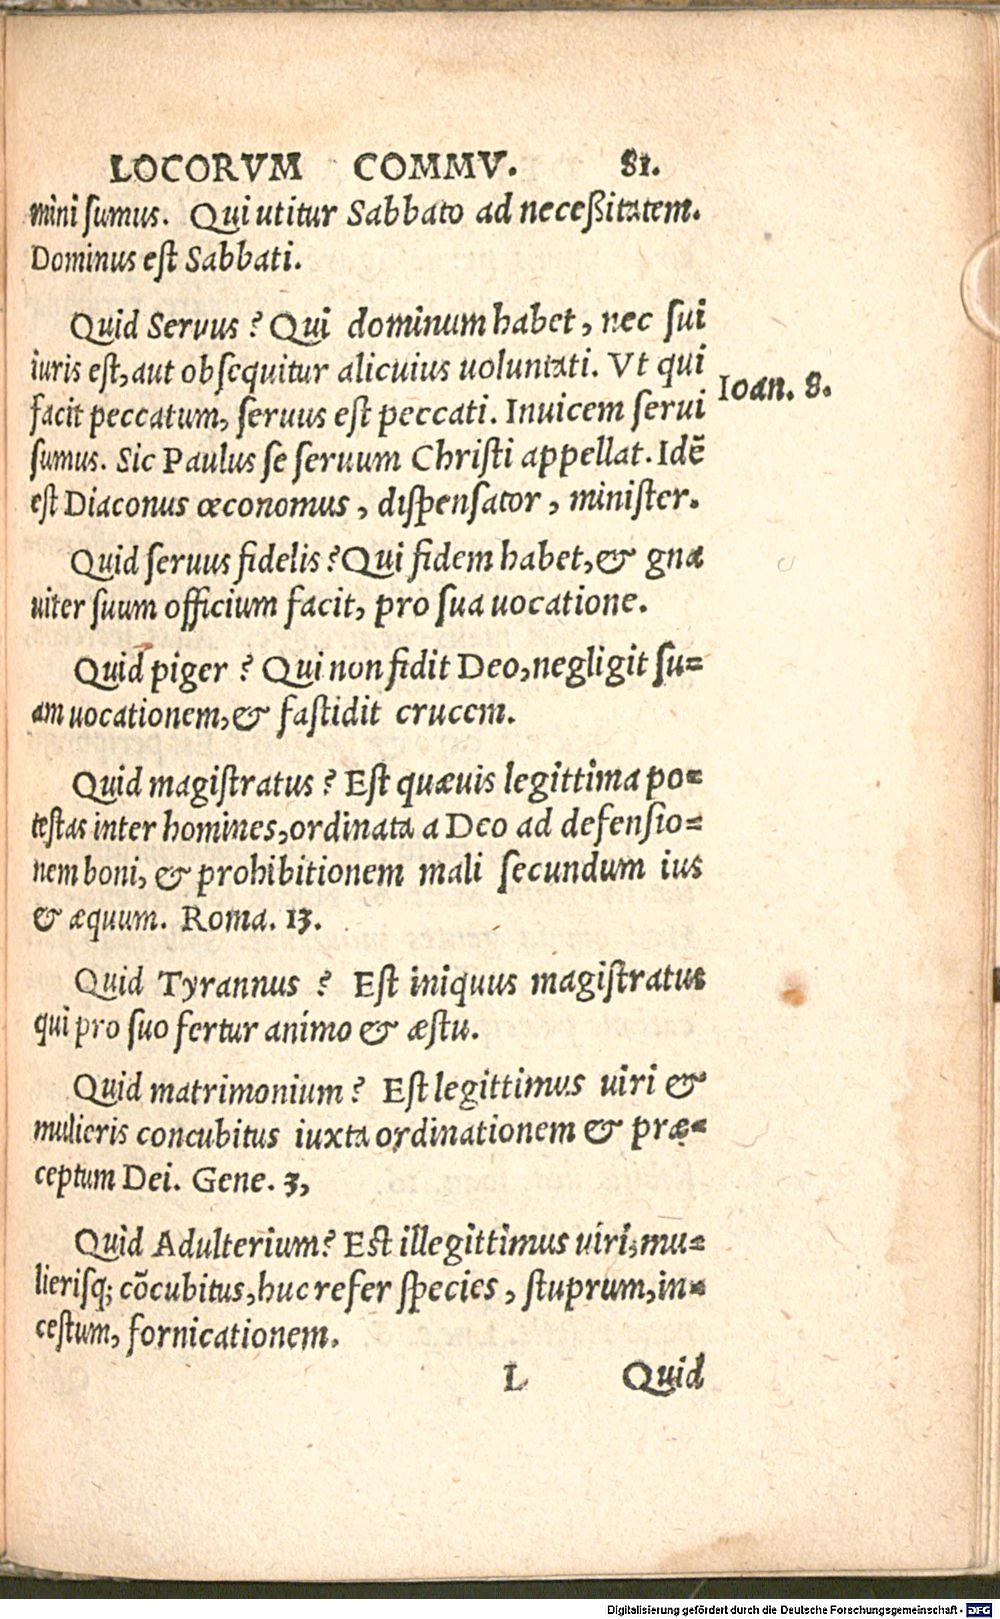 LOCORVM COMMV. 81.
mini sumus. Qui utitur Sabbato ad neceßitatem.
Dominus est Sabbati.
Quid Seruus? Qui dominum habet, nec sui
iuris est, aut obsequitur alicuius uoluntati. Vt qui
facit peccatum, seruus est peccati. Inuicem serui
Ioan. 8.
sumus. Sic Paulus se seruum Christi appellat. Idẽ
est Diaconus œconomus, dispensator, minister.
Quid seruus fidelis? Qui fidem habet, & gna
uiter suum officium facit, pro sua uocatione.
Quid piger? Qui non fidit Deo, negligit su=
am uocationem, & fastidit crucem.
Quid magistratus? Est quæuis legittima po=
testas inter homines, ordinata a Deo ad defensio=
nem boni, & prohibitionem mali secundum ius
& æquum. Roma. 13.
Quid Tyrannus? Est iniquus magistratus
qui pro suo fertur animo & æstu.
Quid matrimonium? Est legittimus uiri &
mulieris concubitus iuxta ordinationem & præ=
ceptum Dei. Gene. 3,
Quid Adulterium? Est illegittimus uiri, mu=
lierisq; cõcubitus, huc refer species, stuprum, in=
cestum, fornicationem.
L Quid
Digitalisierung gefördert durch die Deutsche Forschungsgemeinschaft - DFG